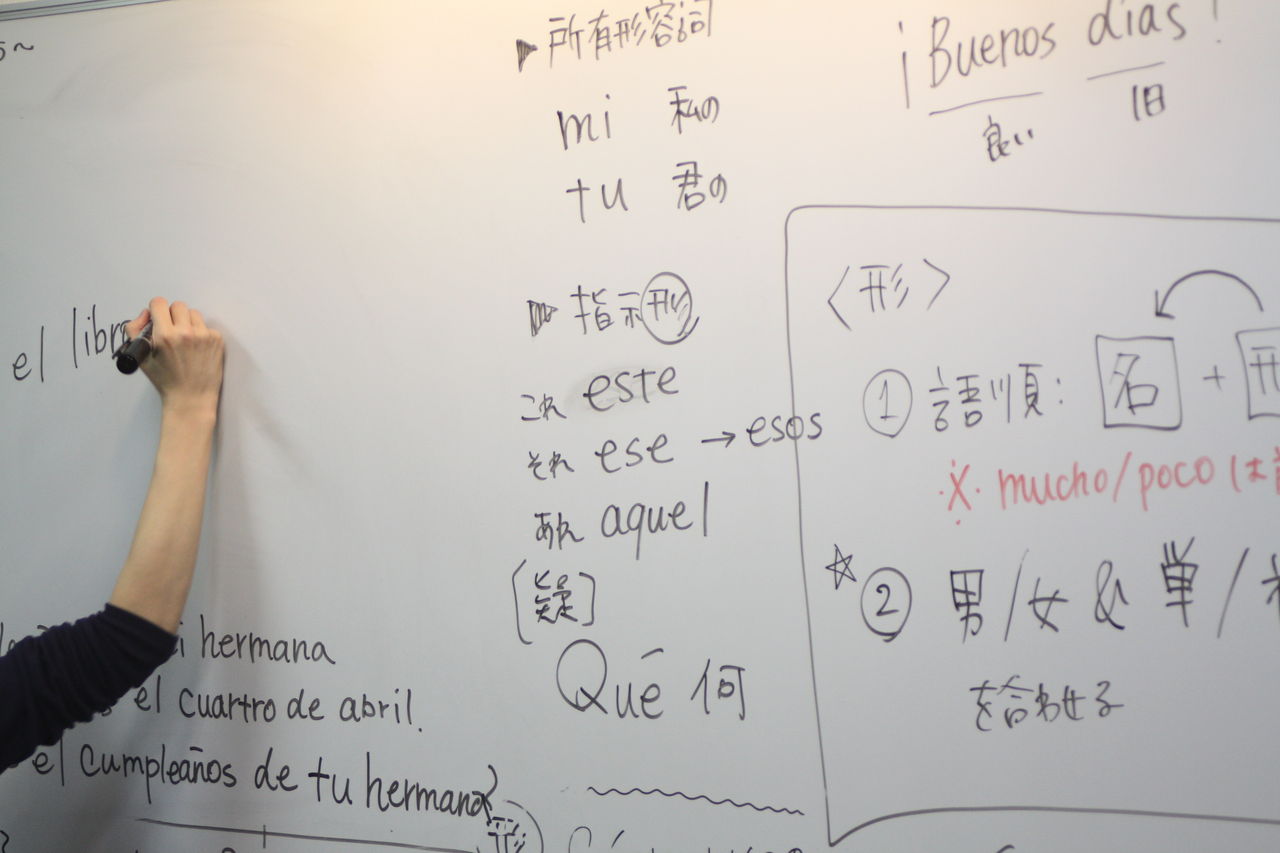 el libr
hermana
el cuartro de abril.
el cumpleaños de tu hermana?
▶所有形容詞
mi 私の
tu 君の
▶指示形
これ este
それ ese → esos
あれ aquel
[疑]
Qué 何
¡Buenos días!
良い 日
〈形〉
① 語順: 名 + 形
※ mucho/poco は
☆② 男/女 & 単/
を合わせる